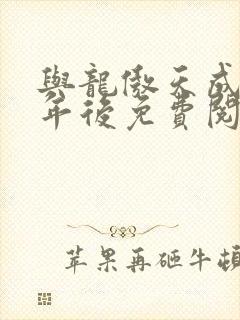 與龍傲天成
年後免費閱
苹果再砸牛頓